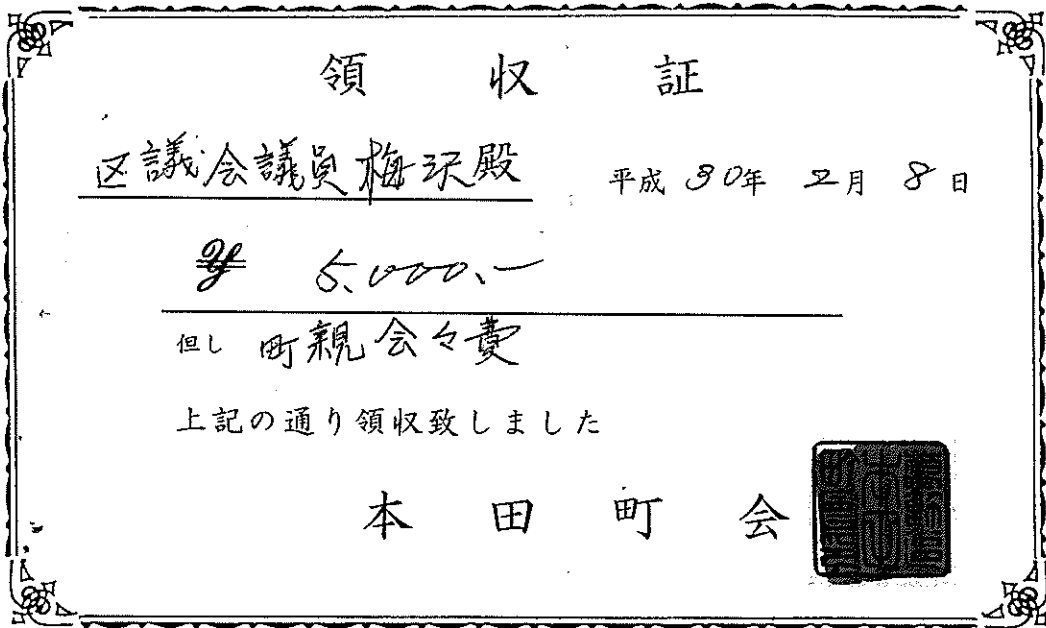 領収証
区議会議員梅沢殿 平成30年2月8日
¥ 5,000.-
但し 町親会々費
上記の通り領収致しました
本田町会